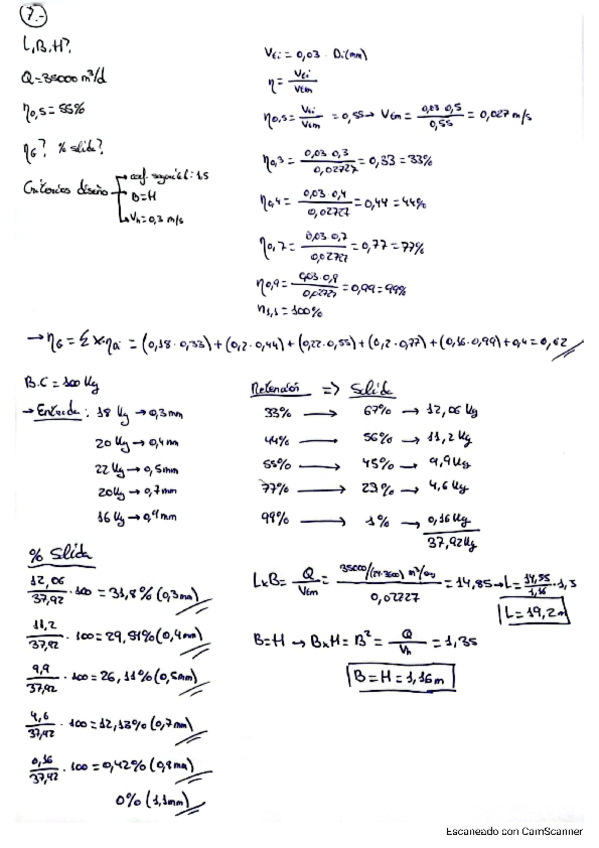 7.-
L, B, H?
Q = 35000 m³/d
η0,5 = 55%
ηG? % slida?
Criterios diseño → coef. seguridad: 1.5
→ B=H
→ Vh = 0,3 m/s
Vci = 0,03 · Di (mm)
η = Vci / VGm
η0,5 = Vci / VGm = 0,55 → VGm = 0,03·0,5 / 0,55 = 0,027 m/s
η0,3 = 0,03·0,3 / 0,02727 = 0,33 = 33%
η0,4 = 0,03·0,4 / 0,02727 = 0,44 = 44%
η0,7 = 0,03·0,7 / 0,02727 = 0,77 = 77%
η0,9 = 0,03·0,9 / 0,02727 = 0,99 = 99%
η1,1 = 100%
→ ηG = Σ X·ηDi = (0,18·0,33) + (0,2·0,44) + (0,22·0,55) + (0,2·0,77) + (0,16·0,99) + 0,4 = 0,62
B.C = 100 Kg
→ Entrada: 18 Kg → 0,3 mm
20 Kg → 0,4 mm
22 Kg → 0,5 mm
20 Kg → 0,7 mm
16 Kg → 0,9 mm
Retención => Salida
33% → 67% → 12,06 Kg
44% → 56% → 11,2 Kg
55% → 45% → 9,9 Kg
77% → 23% → 4,6 Kg
99% → 1% → 0,16 Kg
37,92 Kg
% Slida
12,06 / 37,92 · 100 = 31,8% (0,3 mm)
11,2 / 37,92 · 100 = 29,51% (0,4 mm)
9,9 / 37,92 · 100 = 26,11% (0,5 mm)
4,6 / 37,92 · 100 = 12,13% (0,7 mm)
0,16 / 37,92 · 100 = 0,42% (0,9 mm)
0% (1,1 mm)
LxB = Q / VGm = 35000/(24·3600) / 0,02727 = 14,85 → L =
L = 19,2m
B=H → BxH = B² = Q / Vh = 1,35
B = H = 1,16 m
Escaneado con CamScanner